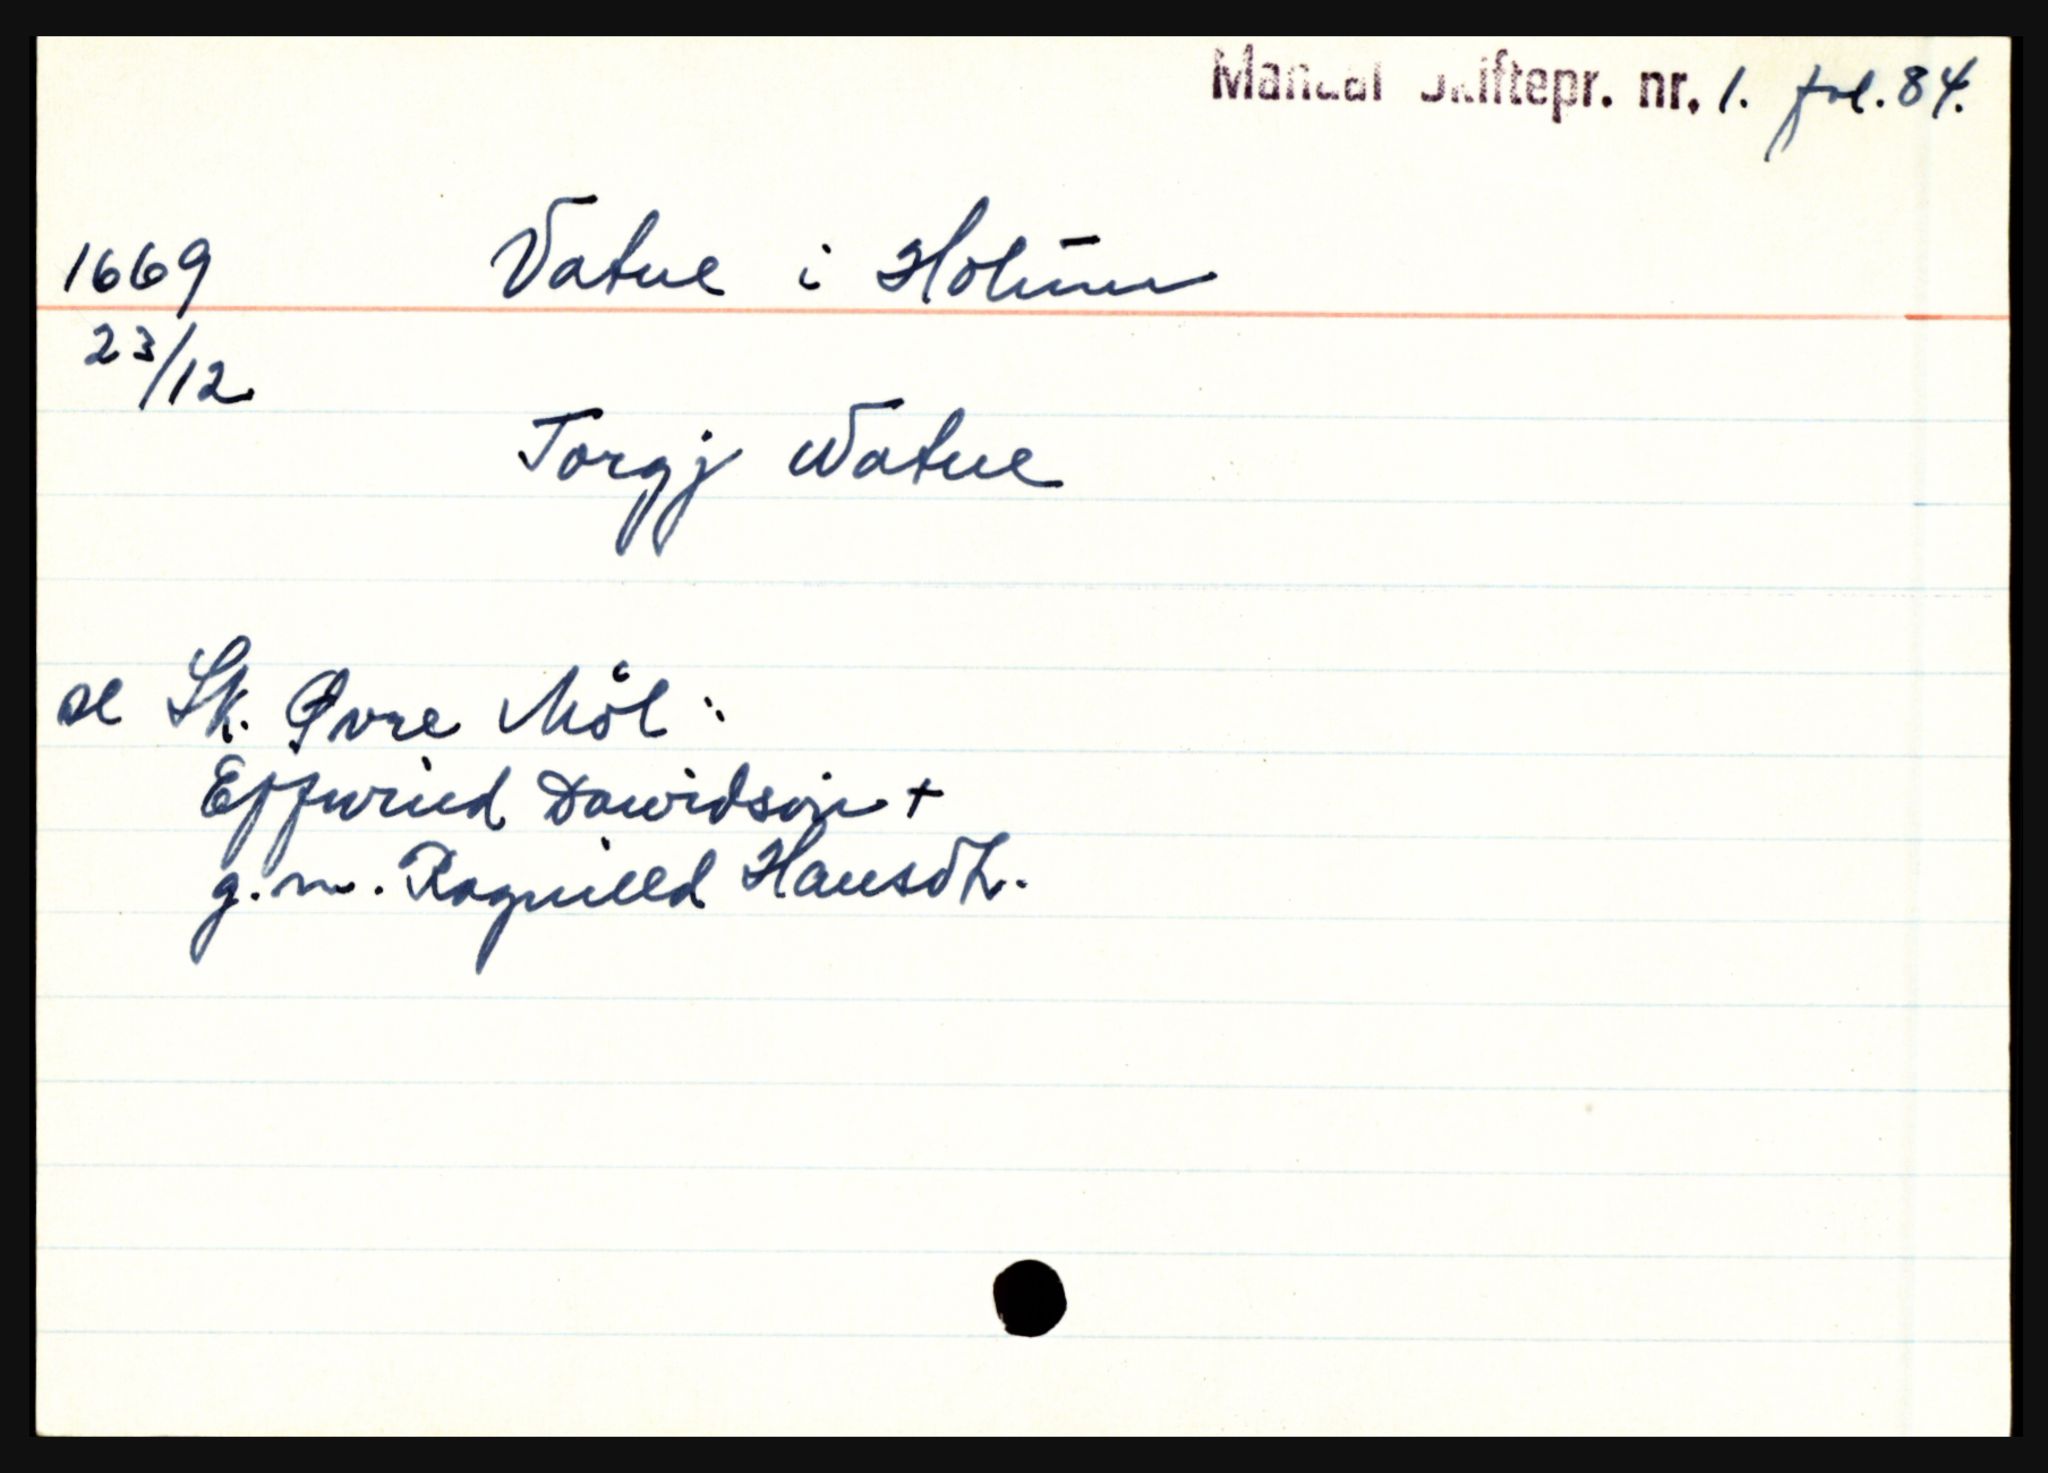 Mandal Skiftepr. nr. 1. fol. 84.
1669 Vatne i Holum
23/12
Torgj Watne
se Sk. Øvre Møl:
Effwind Dawidsøn +
g.m. Ragnilld Hansdt.